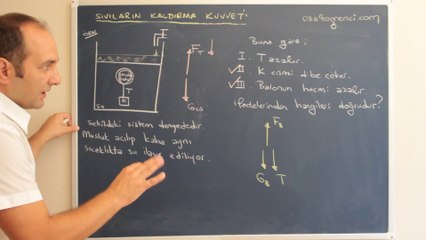 SIVILARIN KALDIRMA KUVVETİ
ozelogrenci.com
Buna göre;
I. T azalır.
II. K cismi dibe çöker.
III. Balonun hacmi azalır.
ifadelerinden hangileri doğrudur?
T
K
Su
Fb
T
Şekildeki sistem dengededir.
Musluk açılıp kaba aynı
sıcaklıkta su ilave ediliyor.